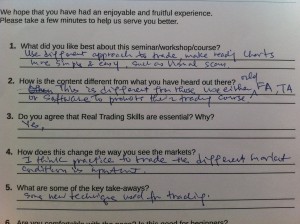 We hope that you have had an enjoyable and fruitful experience.
Please take a few minutes to help us serve you better.
1. What did you like best about this seminar/workshop/course?
Use different approach to trade, make ready charts
more simple & easy, such as visual scan
2. How is the content different from what you have heard out there?
This is different from those use either only FA, TA
or software to promote their trading course.
3. Do you agree that Real Trading Skills are essential? Why?
Yes,
4. How does this change the way you see the markets?
I think practice to trade the different market
condition is important.
5. What are some of the key take-aways?
Some new technique used for trading.
6. Are you comfortable with the pace? Is this good for beginners?